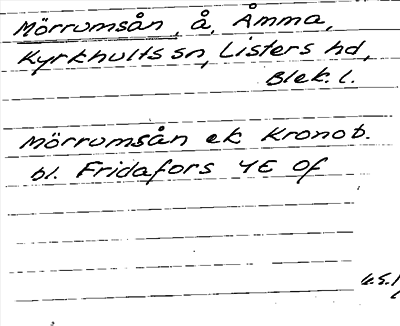 Mörrumsån, å, Åmma,
Kyrkhults sn, Listers hd,
Blek. l.
Mörrumsån ek Kronob.
bl. Fridafors 4E 0f